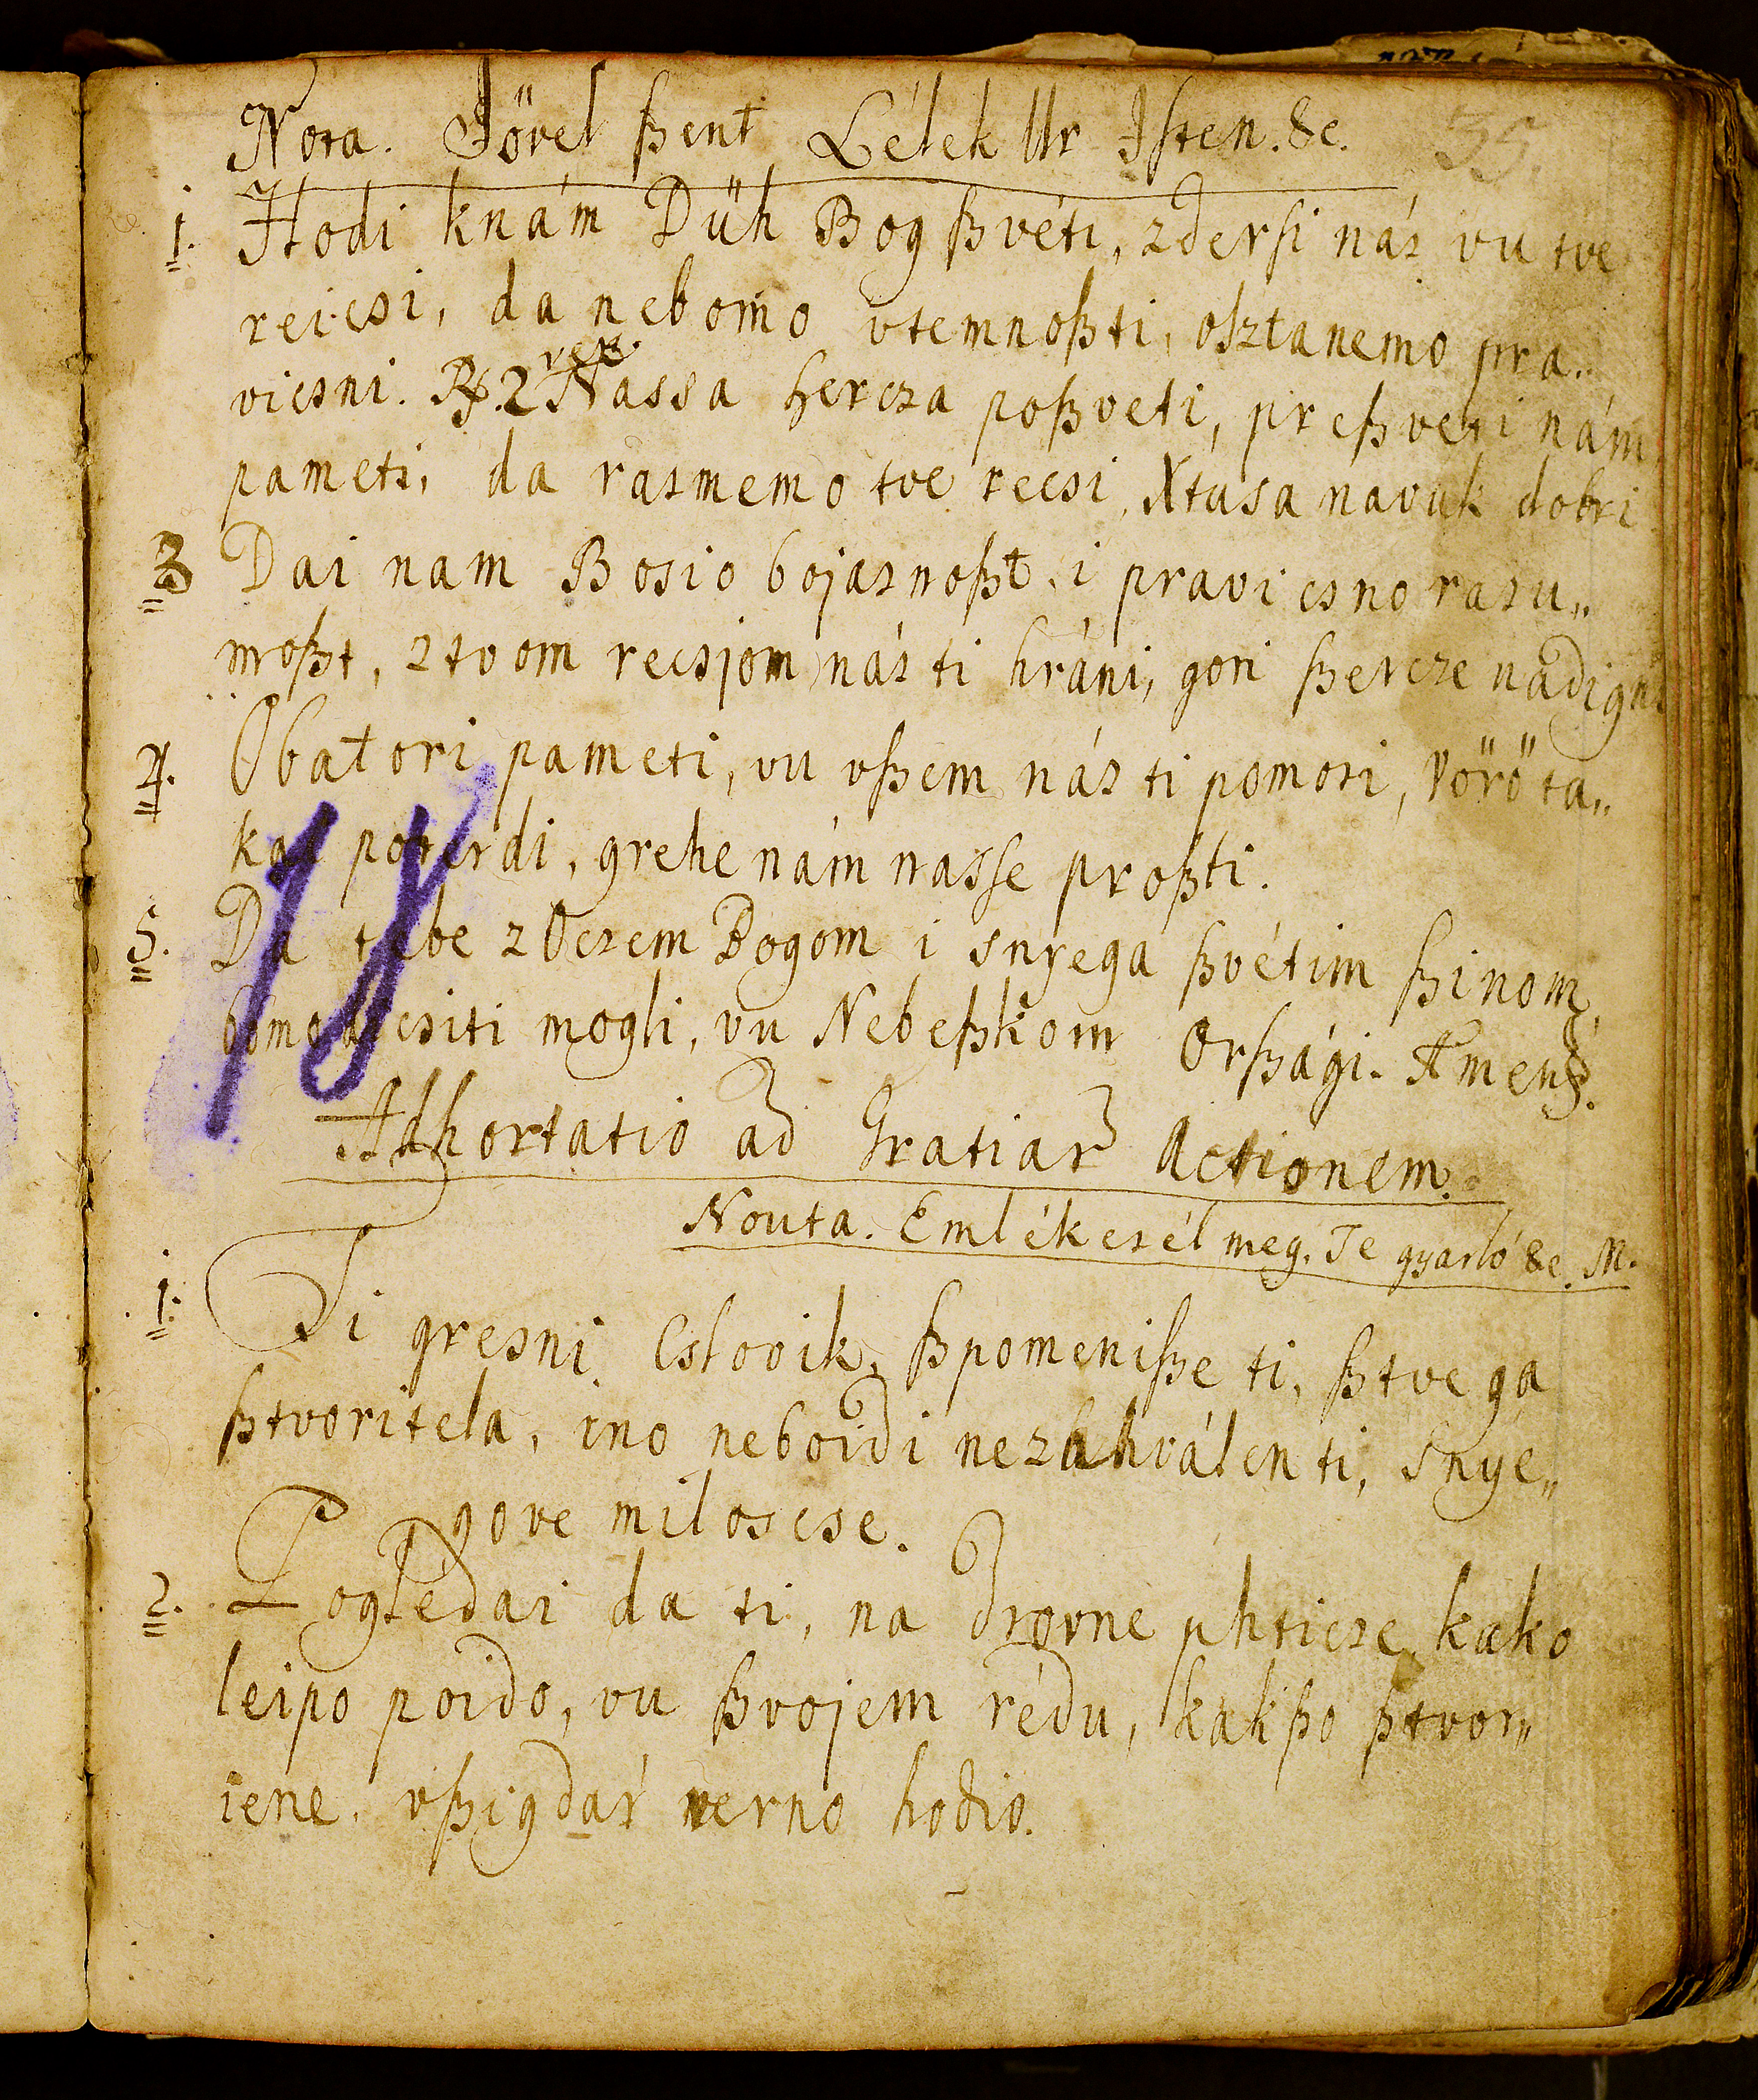 Nota. Jövel ßent Lélek Ur Isten. &c.
35.
1. Hodi knám Düh Bog ßvéti, zdersi nás vu tve
reicsi, da nebomo vtemnoßti, osztanemo pra„
vicsni. R. 2 ver. Nassa hercza poßveti, preßveti nám
pameti, da rasmemo tve recsi, Xtusa navuk dobri
3 Dai nam Bosio bojasnoßt, i pravicsno rasu„
mnoßt, ztvom recsjom nás ti hráni, gori ßercze nádigni
4. Obatori pameti, vu vßem nás ti pomosi, Vörö ta„
kai poterdi, grehe nám nasse proßti.
5. Da tebe zOczem Bogom i snyega ßvétim ßinom,
bomo dicsiti mogli, vu Nebeßkom Orßági. Amen.
18
Adhortatio ad Gratiar Actionem.
Nouta. Emlékezél meg. Te gyarló &c. M.
1. Ti gresni Cslovik, ßpomenißse ti, ßtvega
ßtvoritela, ino neboidi nezahválen ti, snye„
gove miloscse.
2. Pogledai da ti, na drovne phticze, kako
leipo poido, vu ßvojem rédu, kakßo ßtvor„
iene, vßigdar verno hodio.